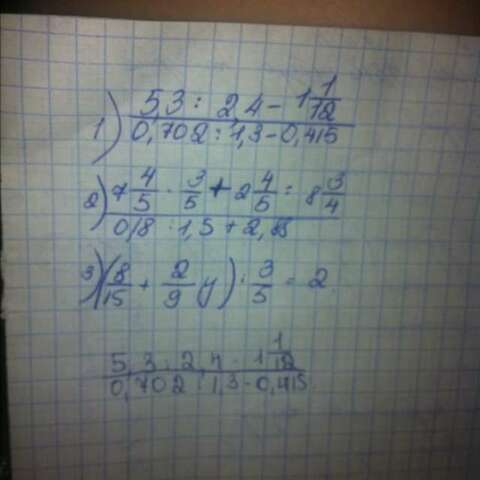 1) 5,3 : 2,4 - 1 1/12
0,702 : 1,3 - 0,415
2) 7 4/5 · 3/5 + 2 4/5 : 8 3/4
0,8 · 1,5 + 2,
3) (8/15 + 2/9 y) : 3/5 = 2
5,3 : 2,4 - 1 1/12
0,702 : 1,3 - 0,415